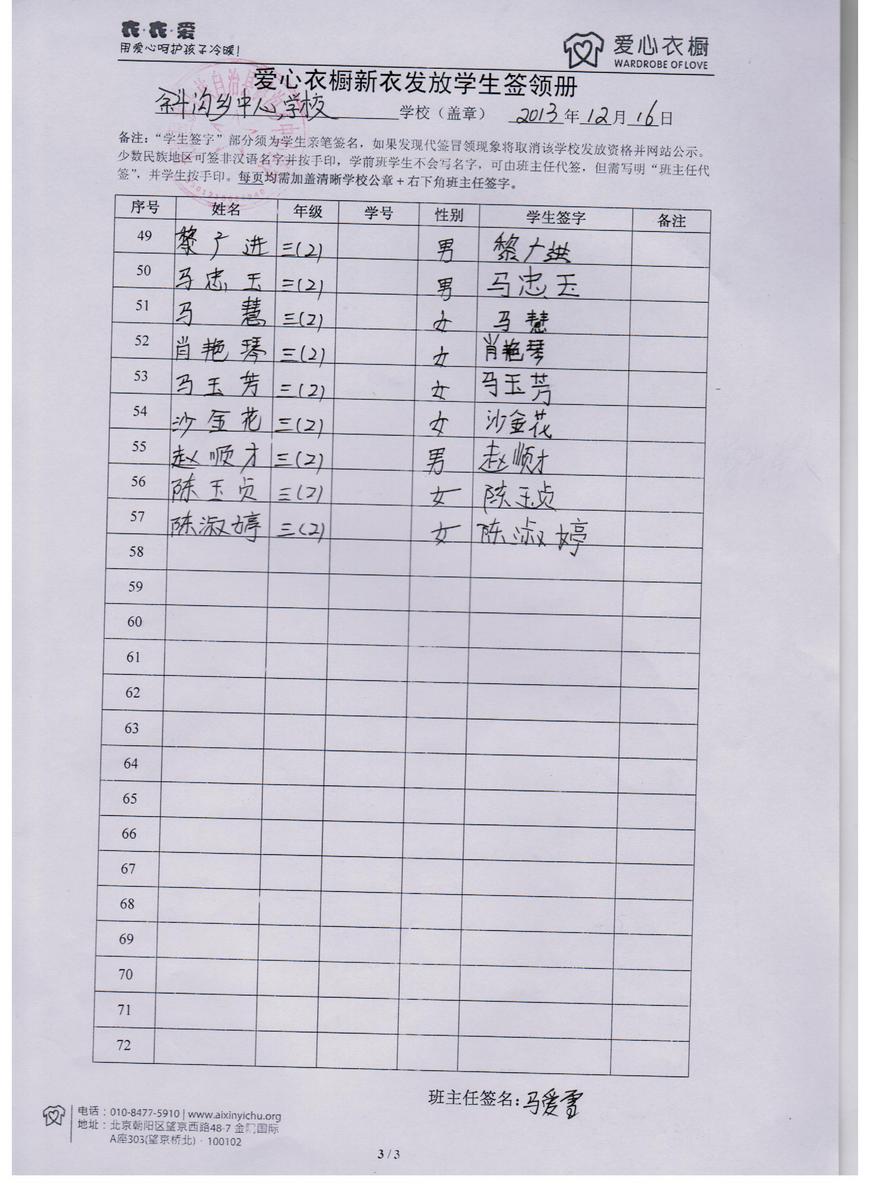 衣·衣·爱
用爱心呵护孩子冷暖!
爱心衣橱
WARDROBE OF LOVE
爱心衣橱新衣发放学生签领册
斜沟乡中心学校 学校（盖章） 2013年12月16日
备注：“学生签字”部分须为学生亲笔签名，如果发现代签冒领现象将取消该学校发放资格并网站公示。
少数民族地区可签非汉语名字并按手印，学前班学生不会写名字，可由班主任代签，但需写明“班主任代
签”，并学生按手印。每页均需加盖清晰学校公章+右下角班主任签字。
序号 姓名 年级 学号 性别 学生签字 备注
49 黎广进 三(2) 男 黎广进
50 马忠玉 三(2) 男 马忠玉
51 马慧 三(2) 女 马慧
52 肖艳琴 三(2) 女 肖艳琴
53 马玉芳 三(2) 女 马玉芳
54 沙金花 三(2) 女 沙金花
55 赵顺才 三(2) 男 赵顺才
56 陈玉贞 三(2) 女 陈玉贞
57 陈淑婷 三(2) 女 陈淑婷
58
59
60
61
62
63
64
65
66
67
68
69
70
71
72
班主任签名：马爱雪
电话：010-8477-5910 | www.aixinyichu.org
地址：北京朝阳区望京西路48-7 金 国际
A座303(望京桥北)·100102
3 / 3